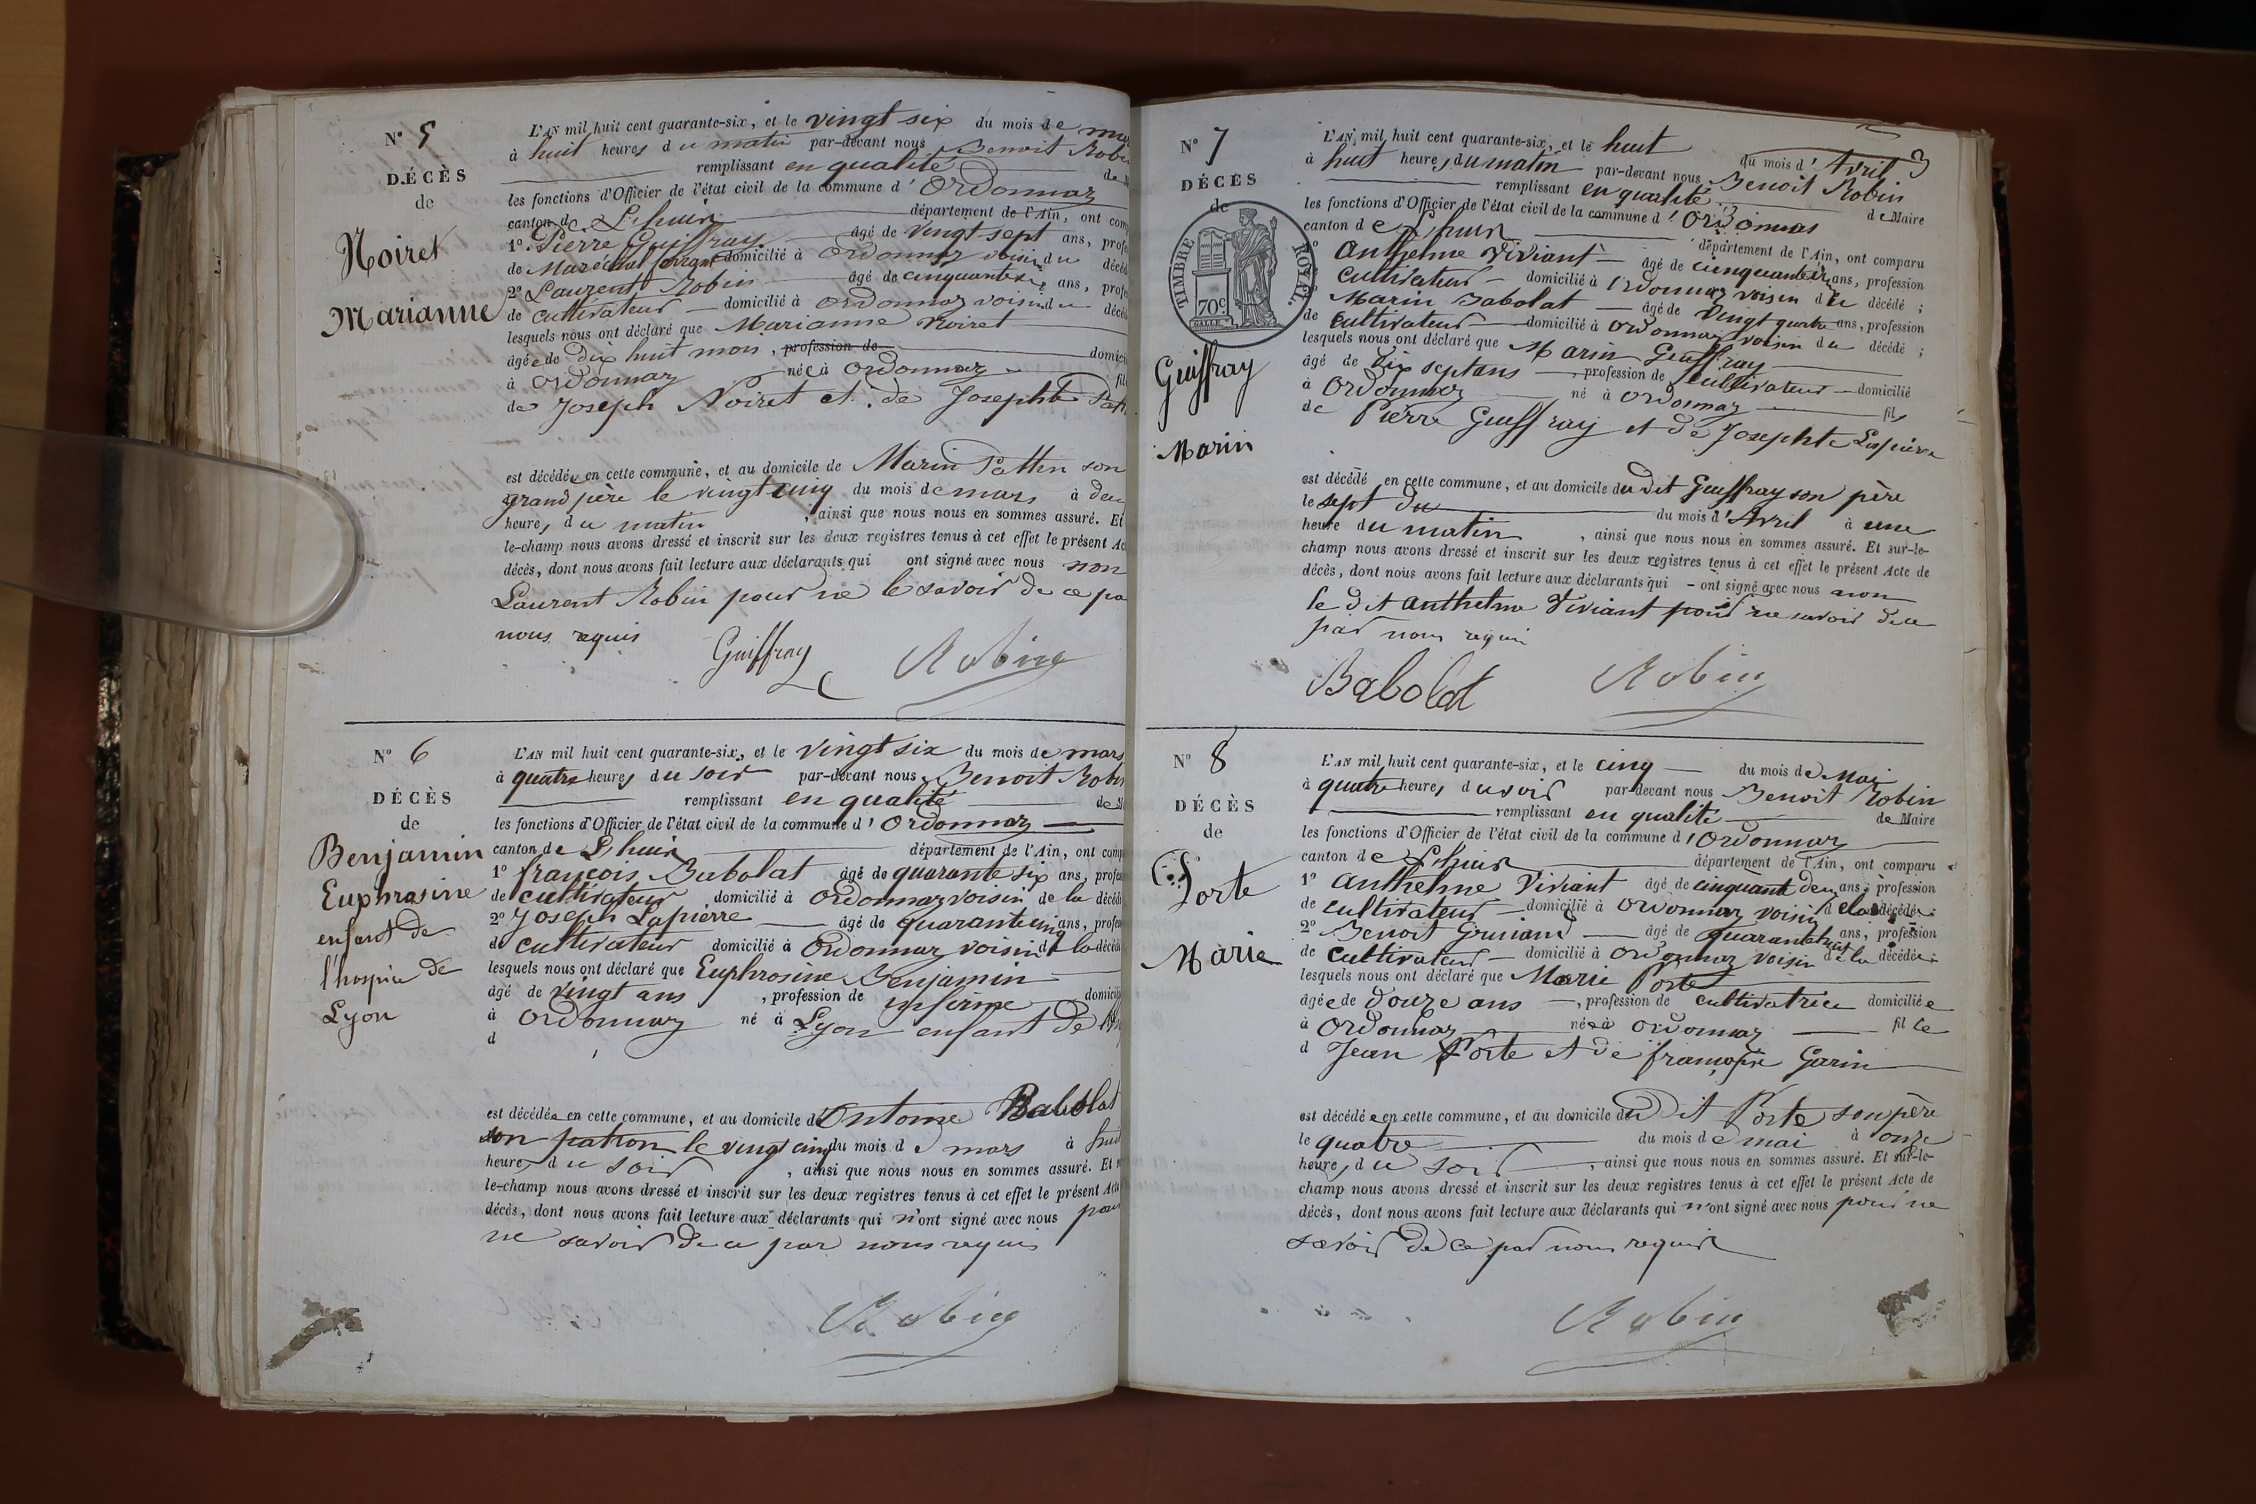 N° 5
DÉCÈS
de
Noiret
Marianne
L'AN mil huit cent quarante-six, et le vingt six du mois de
à huit heures du matin par-devant nous Benoit
remplissant en qualité
les fonctions d'Officier de l'état civil de la commune d'Ordonnaz
canton de Lhuis département de l'Ain, ont
1° Pierre Guiffray âgé de vingt sept ans,
de Maréchal ferrant domicilié à Ordonnaz voisin du
2° Laurent Robin âgé de ans,
de cultivateur domicilié à Ordonnaz voisin du
lesquels nous ont déclaré que Marianne Noiret
âgée de dix huit mois, profession de
à Ordonnaz née à Ordonnaz
de Joseph Noiret et de Josephte
est décédée en cette commune, et au domicile de Marin Pattin son
grand père le vingt cinq du mois de mars à
heures du matin, ainsi que nous nous en sommes assuré. Et
le-champ nous avons dressé et inscrit sur les deux registres tenus à cet effet le présent
décès, dont nous avons fait lecture aux déclarants qui ont signé avec nous non
Laurent Robin pour ne le savoir de ce
nous requis
Guiffray Robin
N° 6
DÉCÈS
de
Benjamin
Euphrosine
enfant de
l'hospice de
Lyon
L'AN mil huit cent quarante-six, et le vingt six du mois de mars
à quatre heures du soir par-devant nous Benoit
remplissant en qualité
les fonctions d'Officier de l'état civil de la commune d'Ordonnaz
canton de Lhuis département de l'Ain, ont
1° françois Babolat âgé de quarante six ans,
de cultivateur domicilié à Ordonnaz voisin de la
2° Joseph Lapierre âgé de quarante cinq ans,
de cultivateur domicilié à Ordonnaz voisin de la
lesquels nous ont déclaré que Euphrosine Benjamin
âgé de vingt ans, profession de infirme
à Ordonnaz né à Lyon enfant de
d
est décédée en cette commune, et au domicile d'Antoine Babolat
son patron le vingt cinq du mois de mars à
heures du soir, ainsi que nous nous en sommes assuré. Et
le-champ nous avons dressé et inscrit sur les deux registres tenus à cet effet le présent
décès, dont nous avons fait lecture aux déclarants qui n'ont signé avec nous pour
ne savoir de ce par nous requis
Robin
3
N° 7
DÉCÈS
de
TIMBRE ROYAL.
70 c
Guiffray
Marin
L'AN mil huit cent quarante-six, et le huit du mois d'Avril
à huit heures du matin par-devant nous Benoit Robin
remplissant en qualité de Maire
les fonctions d'Officier de l'état civil de la commune d'Ordonnas
canton de Lhuis département de l'Ain, ont comparu
Anthelme Viviant âgé de ans, profession
cultivateur domicilié à Ordonnaz voisin du décédé ;
Marin Babolat âgé de vingt quatre ans, profession
de cultivateur domicilié à Ordonnaz voisin du décédé ;
lesquels nous ont déclaré que Marin Guiffray
âgé de dix sept ans, profession de cultivateur domicilié
à Ordonnaz né à Ordonnaz fils
de Pierre Guiffray et de Josephte Lapierre
est décédé en cette commune, et au domicile du dit Guiffray son père
le sept du du mois d'Avril à une
heure du matin, ainsi que nous nous en sommes assuré. Et sur-le-
champ nous avons dressé et inscrit sur les deux registres tenus à cet effet le présent Acte de
décès, dont nous avons fait lecture aux déclarants qui ont signé avec nous non
le dit Anthelme Viviant pour ne savoir de ce
par nous requis
Babolat Robin
N° 8
DÉCÈS
de
Porte
Marie
L'AN mil huit cent quarante-six, et le cinq du mois de Mai
à quatre heures du soir par-devant nous Benoit Robin
remplissant en qualité de Maire
les fonctions d'Officier de l'état civil de la commune d'Ordonnaz
canton de Lhuis département de l'Ain, ont comparu
1° Anthelme Viviant âgé de cinquante deux ans, profession
de cultivateur domicilié à Ordonnaz voisin de la décédée ;
2° Benoit âgé de ans, profession
de cultivateur domicilié à Ordonnaz voisin de la décédée ;
lesquels nous ont déclaré que Marie Porte
âgée de douze ans, profession de cultivatrice domiciliée
à Ordonnaz née à Ordonnaz fille
d Jean Porte et de françoise Garin
est décédée en cette commune, et au domicile du Dit Porte son père
le quatre du mois de mai à onze
heures du soir, ainsi que nous nous en sommes assuré. Et sur-le-
champ nous avons dressé et inscrit sur les deux registres tenus à cet effet le présent Acte de
décès, dont nous avons fait lecture aux déclarants qui n'ont signé avec nous pour ne
savoir de ce par nous requis
Robin